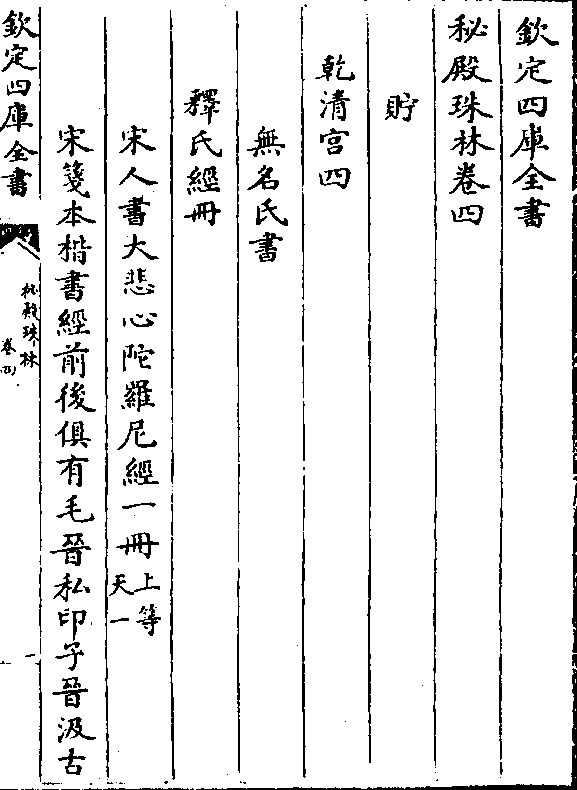 欽定四庫全書
秘殿珠林卷四
貯
乾清宮四
無名氏書
釋氏經冊
宋人書大悲心陀羅尼經一冊上等
天一
宋箋本楷書經前後俱有毛晉私印子晉汲古
欽定四庫全書
秘殿珠林
卷四
一